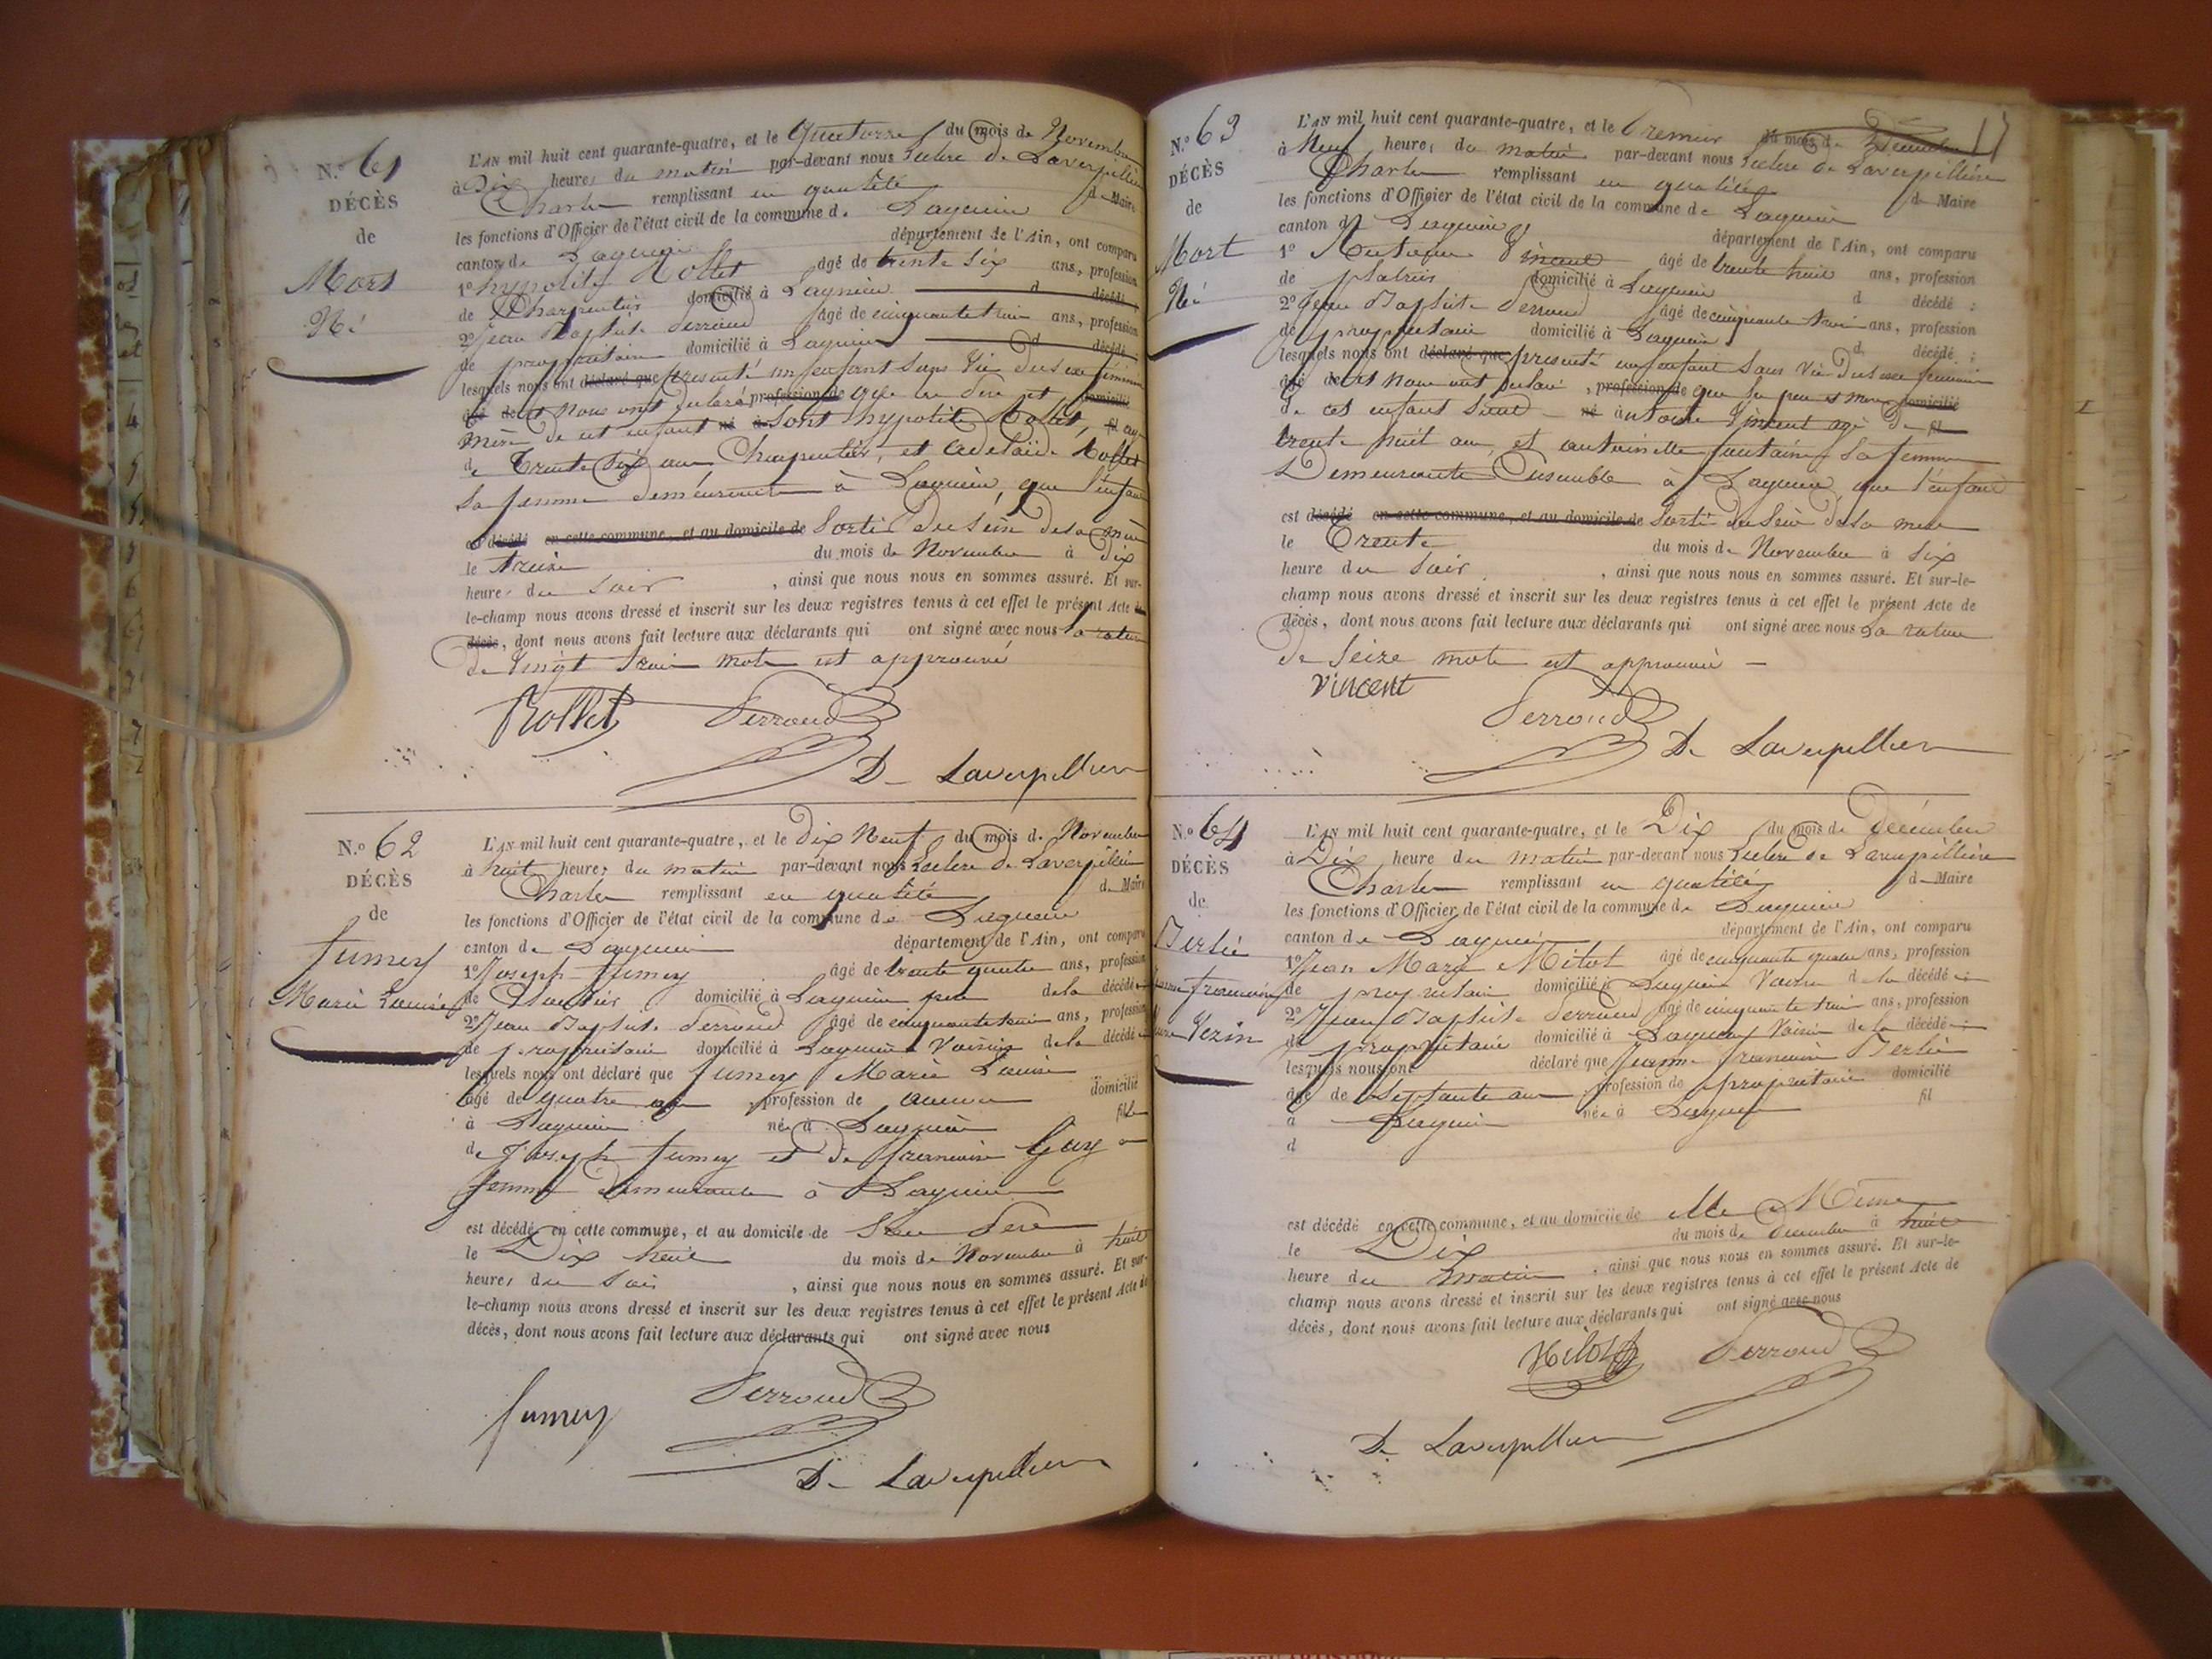 N.o 61
DÉCÈS
de
Mort
Né
L'AN mil huit cent quarante-quatre, et le Quatorze du mois de Novembre
à Dix heures du matin par-devant nous Leclerc de Laverpillière
Charles remplissant en qualité de Maire
les fonctions d'Officier de l'état civil de la commune de Lagnieu
canton de Lagnieu département de l'Ain, ont comparu
1o hypolite Rollet âgé de trente six ans, profession
de Charpentier domicilié à Lagnieu d décédé ;
2o Jean Baptiste Perroud âgé de cinquante trois ans, profession
de propriétaire domicilié à Lagnieu d décédé ;
lesquels nous ont déclaré que présenté un enfant sans Vie du sexe féminin
âgé de et nous ont déclaré profession de que les père et domicilié
mère de cet enfant né à sont hypolite Rollet, fil agé
de Trente Six ans Charpentier, et adelaïde Rollet
sa femme demeurants à Lagnieu, que l'enfant
est décédé en cette commune, et au domicile de Sorti du sein de sa mère
le treize du mois de Novembre à dix
heures du soir , ainsi que nous nous en sommes assuré. Et sur-
le-champ nous avons dressé et inscrit sur les deux registres tenus à cet effet le présent Acte de
décès, dont nous avons fait lecture aux déclarants qui ont signé avec nous la rature
de Vingt trois mots est approuvé
Rollet Perroud
De Laverpilliere
N.o 62
DÉCÈS
de
fumey
Marie Louise
L'AN mil huit cent quarante-quatre, et le dix Neuf du mois de Novembre
à huit heures du matin par-devant nous Leclerc de Laverpillière
Charles remplissant en qualité de Maire
les fonctions d'Officier de l'état civil de la commune de Lagnieu
canton de Lagnieu département de l'Ain, ont comparu
1o Joseph fumey âgé de trente quatre ans, profession
de domicilié à Lagnieu père de la décédée
2o Jean Baptiste Perroud âgé de cinquante trois ans, profession
de propriétaire domicilié à Lagnieu Voisin de la décédée
lesquels nous ont déclaré que fumey Marie Louise
âgé de quatre ans , profession de aucune domicilié
à Lagnieu née à Lagnieu fille
de Joseph fumey et de francoise Guy
femme demeurants à Lagnieu
est décédé en cette commune, et au domicile de Son Père
le Dix huit du mois de Novembre à huit
heures du soir , ainsi que nous nous en sommes assuré. Et sur-
le-champ nous avons dressé et inscrit sur les deux registres tenus à cet effet le présent Acte de
décès, dont nous avons fait lecture aux déclarants qui ont signé avec nous
fumey Perroud
De Laverpilliere
N.o 63
DÉCÈS
de
Mort
Né
L'AN mil huit cent quarante-quatre, et le Premier du mois de Décembre
à Neuf heures du matin par-devant nous Leclerc de Laverpillière
Charles remplissant en qualité de Maire
les fonctions d'Officier de l'état civil de la commune de Lagnieu
canton de Lagnieu département de l'Ain, ont comparu
1o Antoine Vincent âgé de trente huit ans, profession
de platrier domicilié à Lagnieu d décédé ;
2o Jean Baptiste Perroud âgé de cinquante trois ans, profession
de propriétaire domicilié à Lagnieu d décédé ;
lesquels nous ont déclaré que présenté un enfant sans Vie du sexe féminin
âgé de et nous ont déclaré , profession de que les père et mère domicilié
de cet enfant sont né à antoine Vincent agé de fil
trente huit ans, et antoinette fontaine sa femme
Demeurants Ensemble à Lagnieu, que l'enfant
est décédé en cette commune, et au domicile de Sorti du sein de sa mère
le Trente du mois de Novembre à Six
heure du soir , ainsi que nous nous en sommes assuré. Et sur-le-
champ nous avons dressé et inscrit sur les deux registres tenus à cet effet le présent Acte de
décès, dont nous avons fait lecture aux déclarants qui ont signé avec nous La rature
de Seize mots est approuvée
Vincent
Perroud
De Laverpilliere
N.o 64
DÉCÈS
de
Berlié
francoise
Vezin
L'AN mil huit cent quarante-quatre, et le Dix du mois de décembre
à Dix heure du matin par-devant nous Leclerc de Laverpillière
Charles remplissant en qualité de Maire
les fonctions d'Officier de l'état civil de la commune de Lagnieu
canton de Lagnieu département de l'Ain, ont comparu
1o Jean Marie Milot âgé de cinquante quatre ans, profession
de propriétaire domicilié à Lagnieu Voisin de la décédée
2o Jean Baptiste Perroud âgé de cinquante trois ans, profession
de propriétaire domicilié à Lagnieu Voisin de la décédée
lesquels nous ont déclaré que Jeanne francoise Berlié
âgé de Septante ans profession de propriétaire domicilié
à Lagnieu née à Lagnieu fil
d
est décédé en cette commune, et au domicile de Elle Même
le Dix du mois de décembre à huit
heure du matin , ainsi que nous nous en sommes assuré. Et sur-le-
champ nous avons dressé et inscrit sur les deux registres tenus à cet effet le présent Acte de
décès, dont nous avons fait lecture aux déclarants qui ont signé avec nous
Milot Perroud
De Laverpilliere